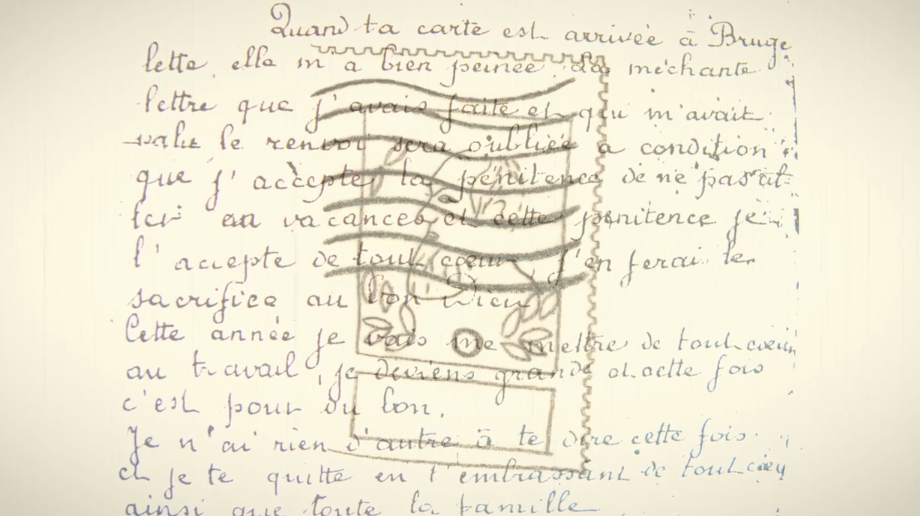 Quand ta carte est arrivée à Bruge
lette, elle m'a bien peinée. La méchante
lettre que j'avais faite et qui m'avait
valu le renvoi sera oubliée à condition
que j'accepte la pénitence de ne pas
en vacances et cette pénitence je
l'accepte de tout coeur j'en ferai le
sacrifice au bon Dieu
Cette année je vais me mettre de tout coeur
au travail, je deviens grande et cette fois
c'est pour du bon.
Je n'ai rien d'autre à te dire cette fois
et je te quitte en t'embrassant de tout coeur
ainsi que toute la famille